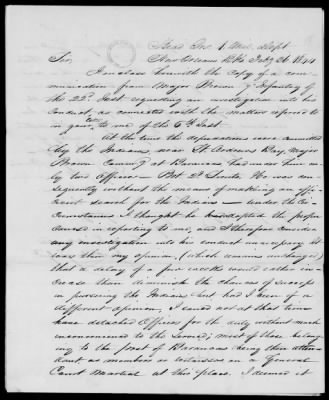 Head Qrs 1 Mil. Dept
New Orleans Bks Feby 26 1844
Sir,
I enclose herewith the copy of a com-
munication from Major Brown 7 Infantry of
the 22d Inst requesting an investigation into his
conduct as connected with the matters referred to
in your letter to me of the 5th Inst.
At the time the depredations were committed
by the Indians near St Andrews Bay, Major
Brown Comdg at Barrancas had near him on-
ly two Officers - 2d Lieuts. He was con-
sequently without the means of making an effi-
cient search for the Indians - under the Cir-
cumstances I thought he had adopted the proper
course in reporting to me, and I therefore consider
any investigation into his conduct unnecessary. It
was then my opinion, (which remains unchanged)
that a delay of a few weeks would rather in-
crease than diminish the chances of success
in pursuing the Indians but had I been of a
different opinion, I could not at that time
have detached Officers for the duty without much
inconvenience to the Service; most of those belong-
ing to the post of Barrancas being then atten-
dant as members or witnesses on a General
Court Martial at this place. I deemed it